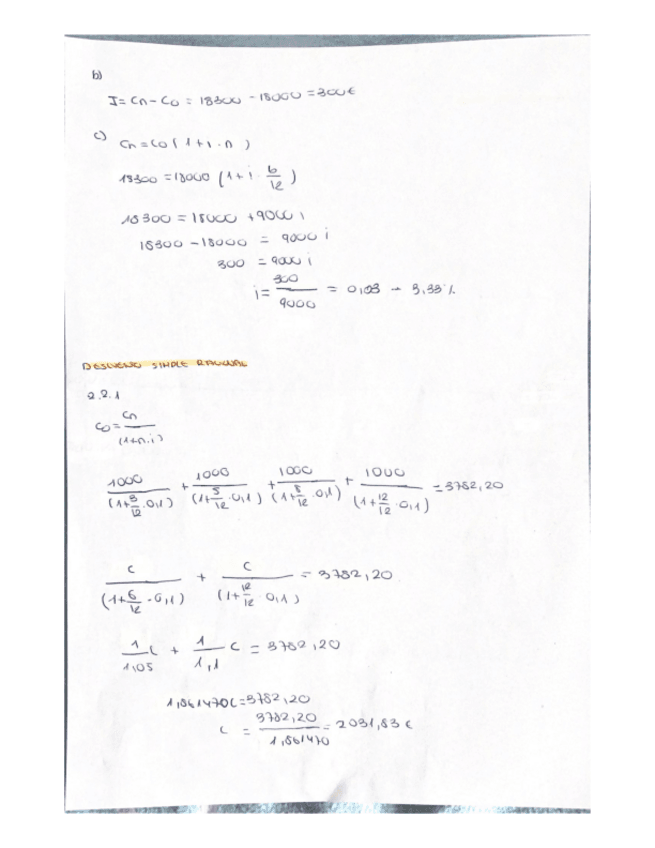 b)
I = Cn - Co = 18300 - 18000 = 300€
c)
Cn = Co (1 + i · n)
18300 = 18000 (1 + i · 6/12)
18300 = 18000 + 9000 i
18300 - 18000 = 9000 i
300 = 9000 i
i = 300/9000 = 0,03 → 3,33%
DESCUENTO SIMPLE RACIONAL
2.2.1
Co = Cn/(1+n·i)
1000/(1+3/12·0,1) + 1000/(1+5/12·0,1) + 1000/(1+8/12·0,1) + 1000/(1+12/12·0,1) = 3782,20
C/(1+6/12·0,1) + C/(1+12/12·0,1) = 3782,20
1/1,05 C + 1/1,1 C = 3782,20
1,861470C = 3782,20
C = 3782,20/1,861470 = 2031,83 €